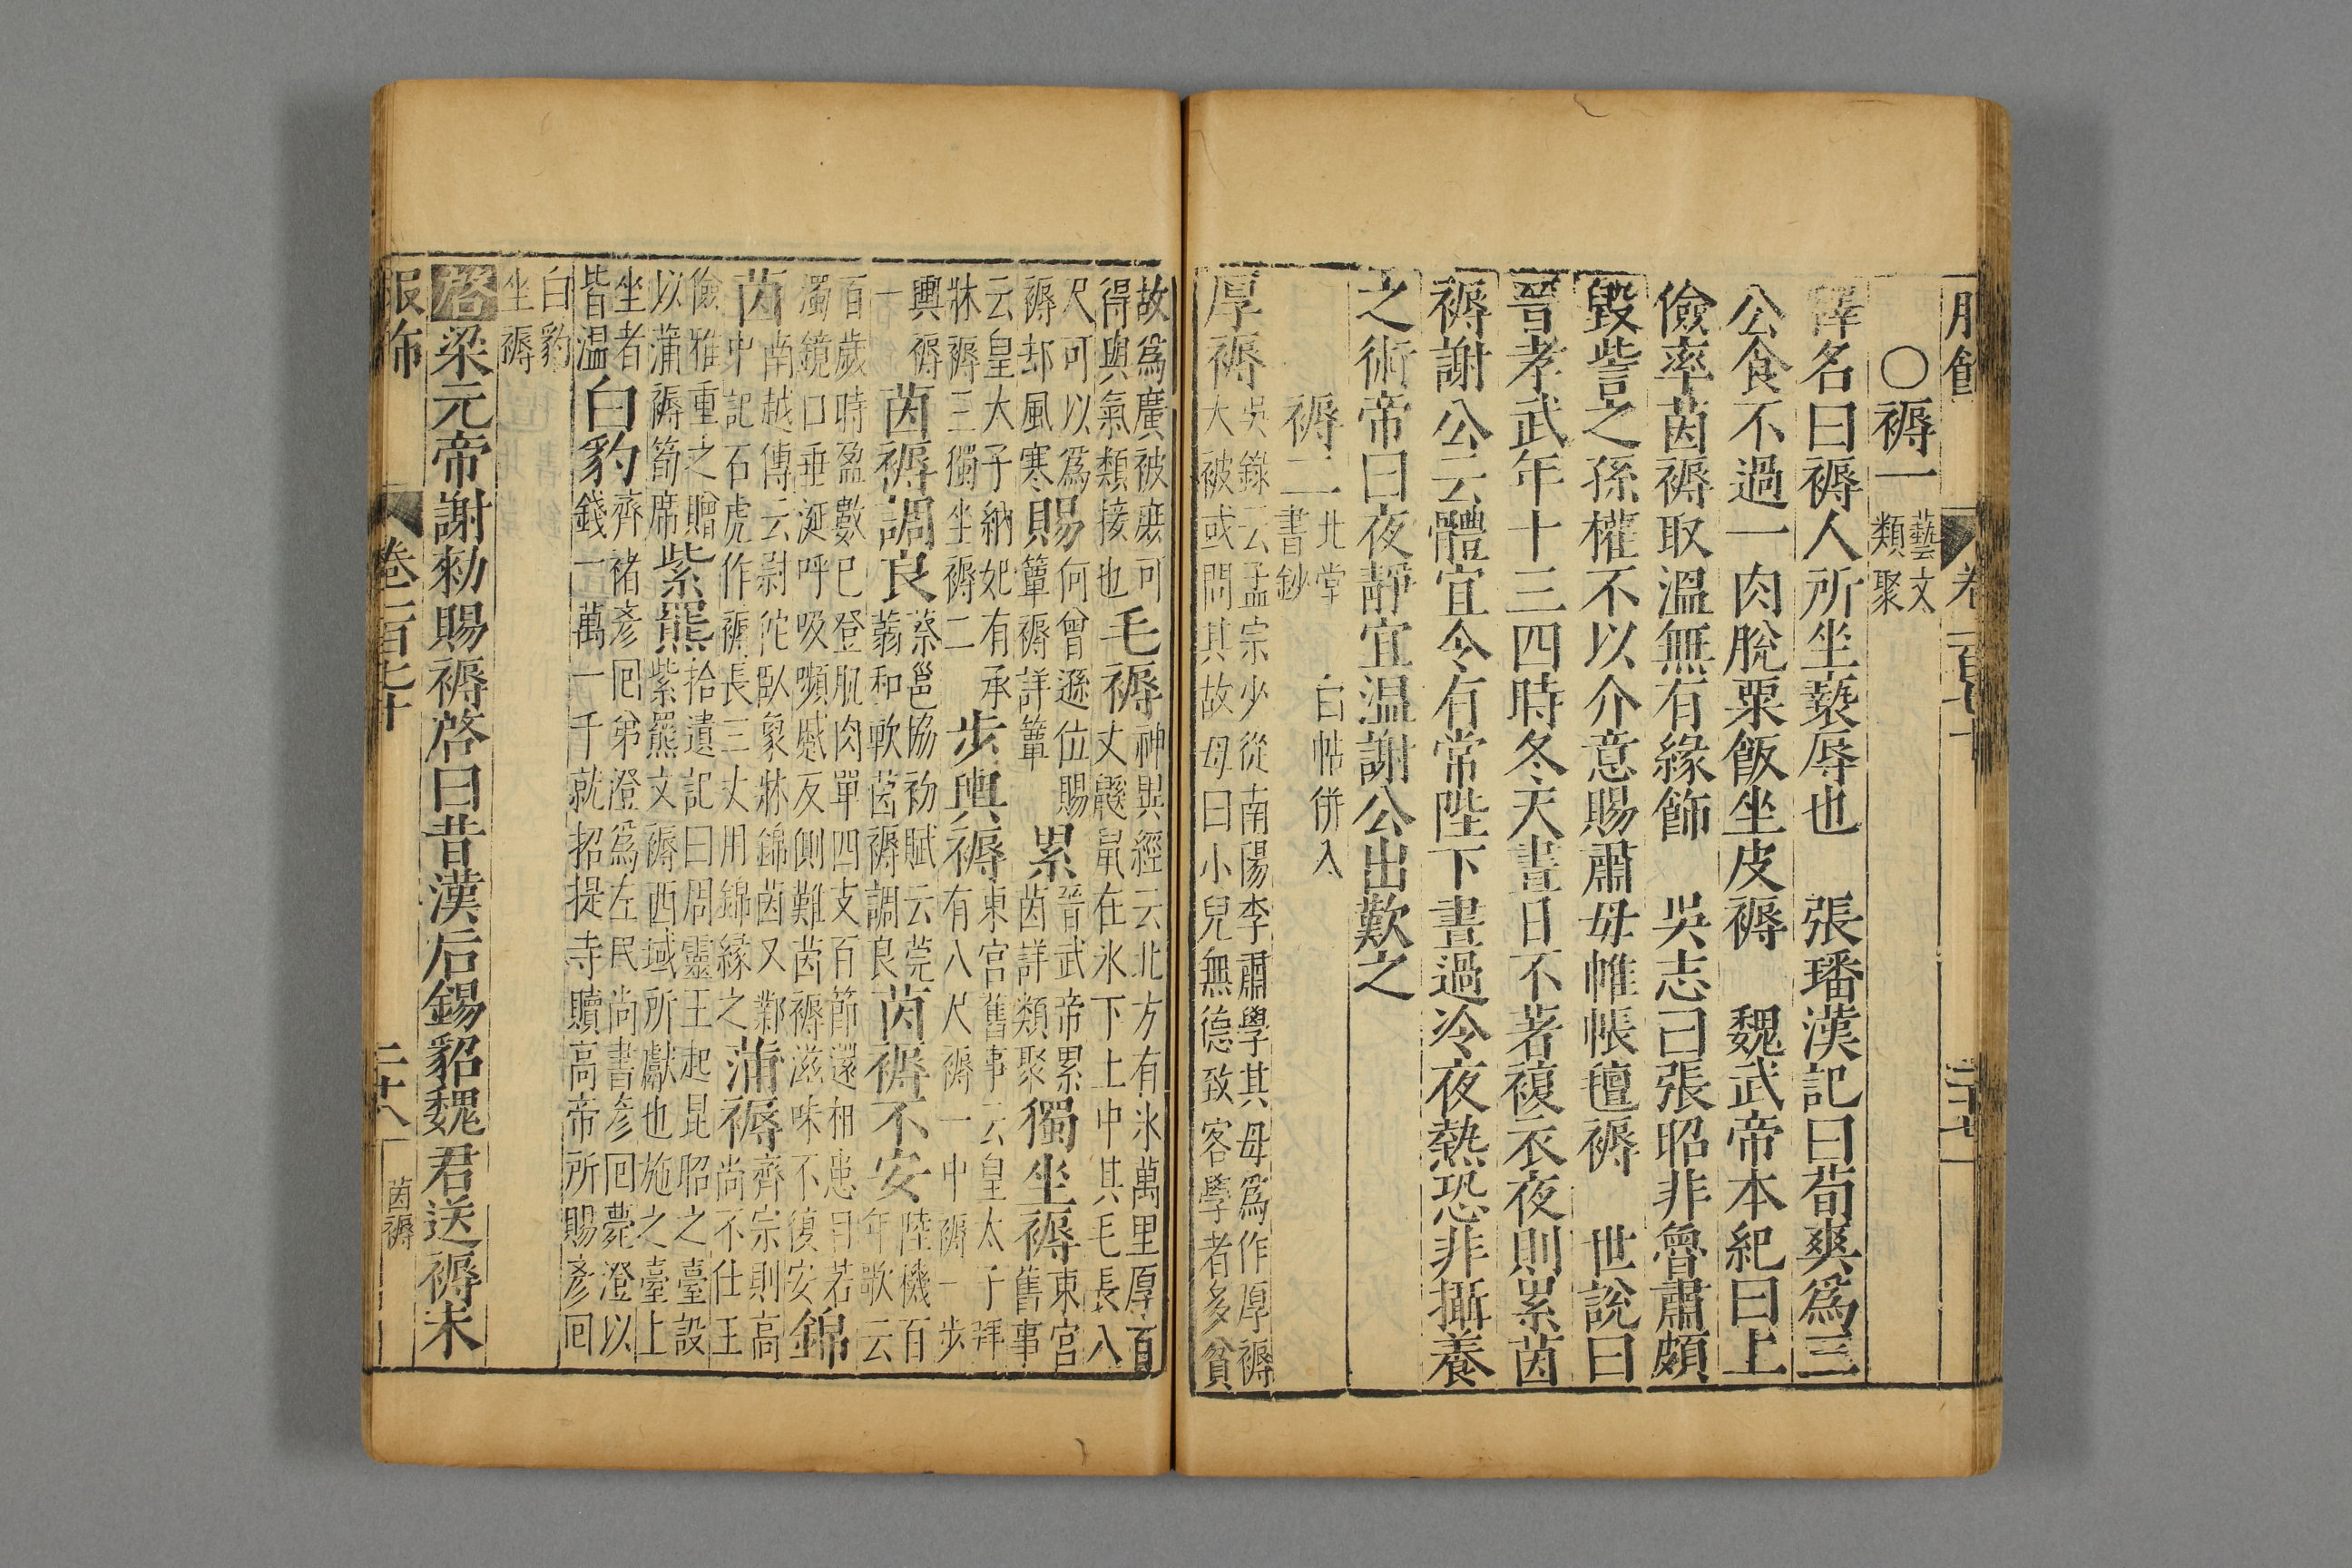 服飾 卷一百七十 二十七
〇褥一藝文類聚
釋名曰褥人所坐䙝辱也 張璠漢記曰荀爽爲三
公食不過一肉脫粟飯坐皮褥 魏武帝本紀曰上
儉率茵褥取溫無有緣飾 吳志曰張昭非魯肅頗
毀訾之孫權不以介意賜肅母帷帳氊褥 世說曰
晉孝武年十三四時冬天晝日不著複衣夜則累茵
褥謝公云體宜令有常陛下晝過冷夜熱恐非攝養
之術帝曰夜靜宜温謝公出歎之
褥二北堂書鈔 白帖併入
厚褥吳錄云孟宗少從南陽李肅學其母爲作厚褥大被或問其故母曰小兒無德致客學者多貧
故爲廣被庶可得與氣類接也毛褥神異經云北方有氷萬里厚百丈鼷鼠在氷下土中其毛長八
尺可以爲褥却風寒賜何曾遜位賜簟褥詳簟累晉武帝累茵詳類聚獨坐褥東宮舊事
云皇太子納妃有承牀褥三獨坐褥二步輿褥東宮舊事云皇太子拜有八尺褥一中褥一步
輿褥一茵褥調良蔡邕協初賦云莞蒻和軟茵褥調良茵褥不安陸機百年歌云
百歲時盈數已登肌肉單四支百節還相患目若濁鏡口垂涎呼吸嚬蹙反側難茵褥滋味不復安錦
茵南越傳云尉佗臥象牀錦茵又鄴中記石虎作褥長三丈用錦緣之蒲褥齊宗則高尚不仕王
儉雅重之贈以蒲褥筍席紫羆拾遺記曰周靈王起昆昭之臺設紫羆文褥西域所獻也施之臺上
坐者皆温白豹齊褚彥回弟澄爲左民尚書彥回薨澄以錢一萬一千就招提寺贖高帝所賜彥回
白豹坐褥
啓梁元帝謝勑賜褥啓曰昔漢后錫貂魏君送褥未
服飾 卷一百七十 二十八 茵褥